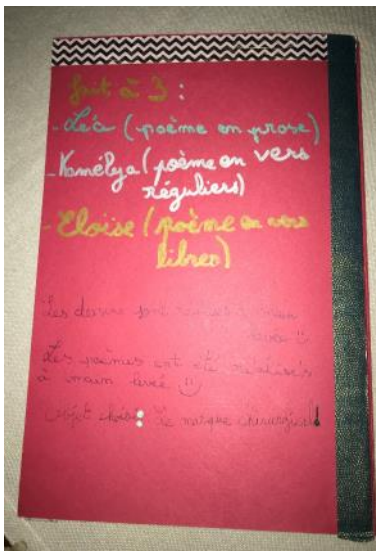 fait à 3 :
- Léa (poème en prose)
- Kamélya (poème en vers
réguliers)
- Eloïse (poème en vers
libres)
Les dessins sont réalisés à main
levée
Les poèmes ont été réalisés
à main levée :)
Objet choisi : Le masque chirurgical !